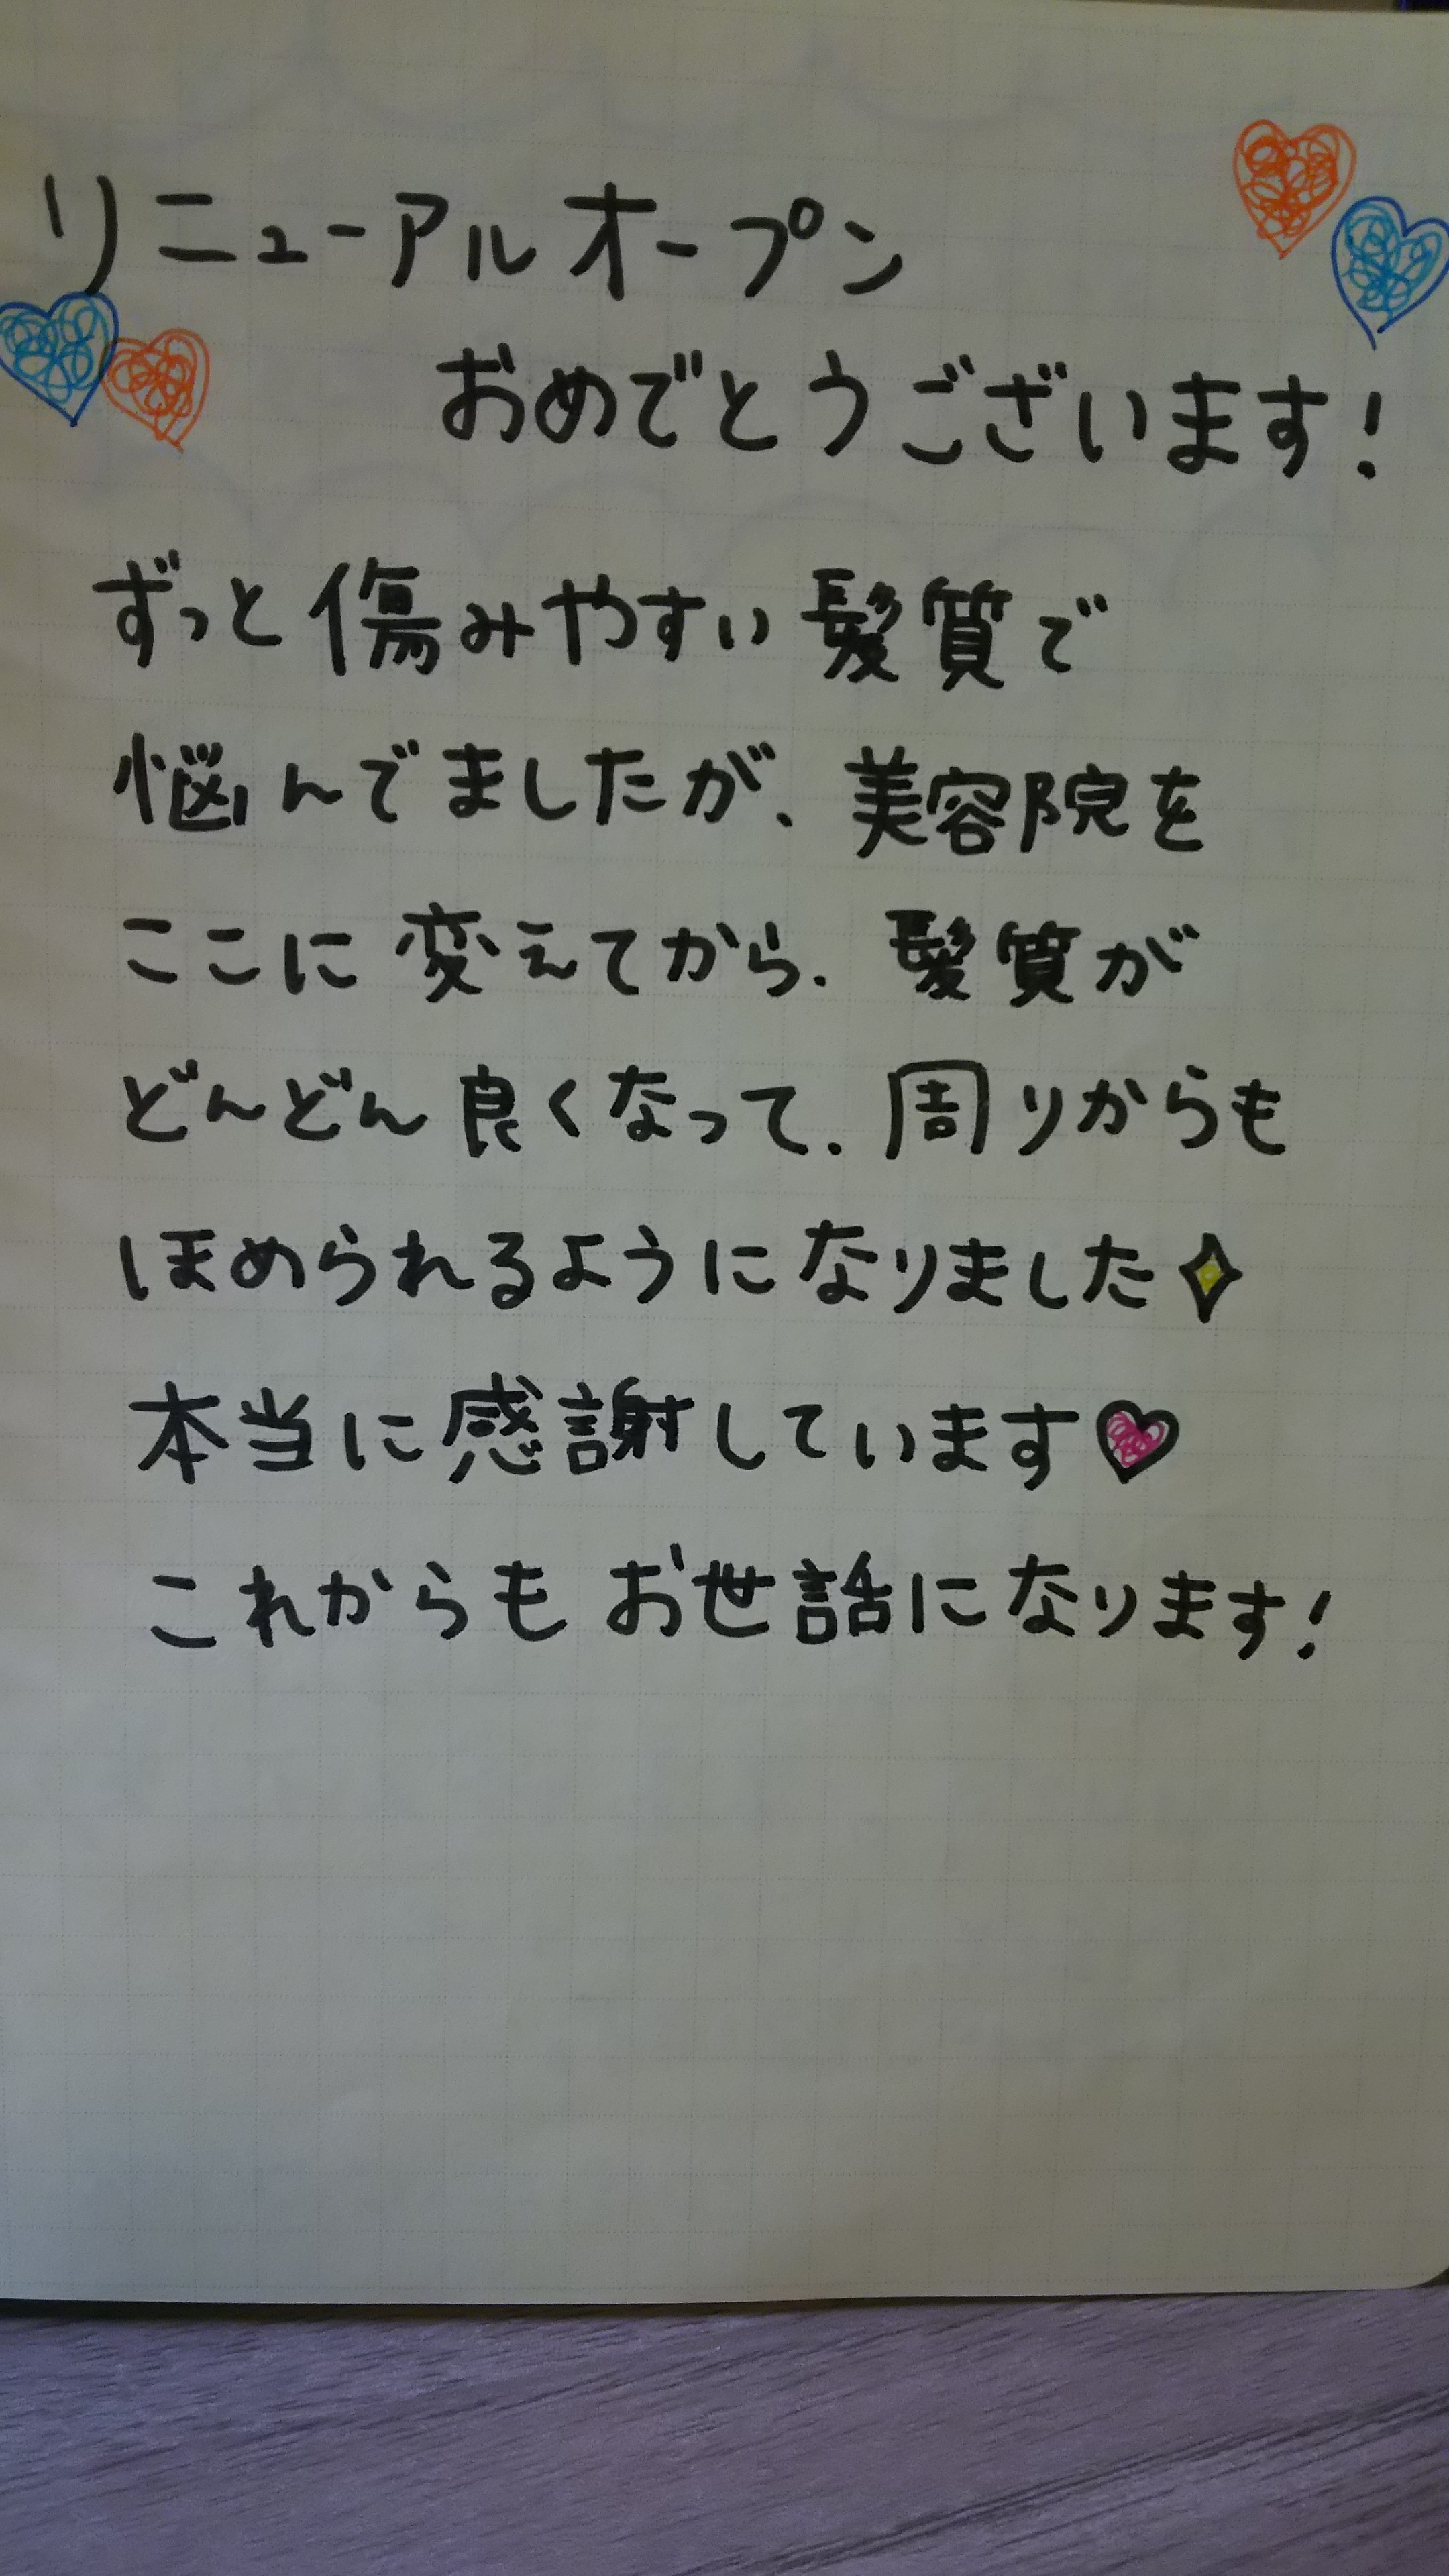 リニューアルオープン
おめでとうございます!
ずっと傷みやすい髪質で
悩んでましたが、美容院を
ここに変えてから、髪質が
どんどん良くなって、周りからも
ほめられるようになりました
本当に感謝しています
これからもお世話になります!